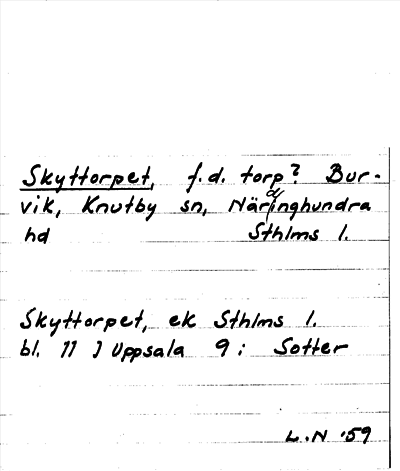 Skyttorpet, f.d. torp? Bur-
vik, Knutby sn, Närdinghundra
hd Sthlms l.
Skyttorpet, ek Sthlms l.
bl. 11 J Uppsala 9: Sotter
L.N '59